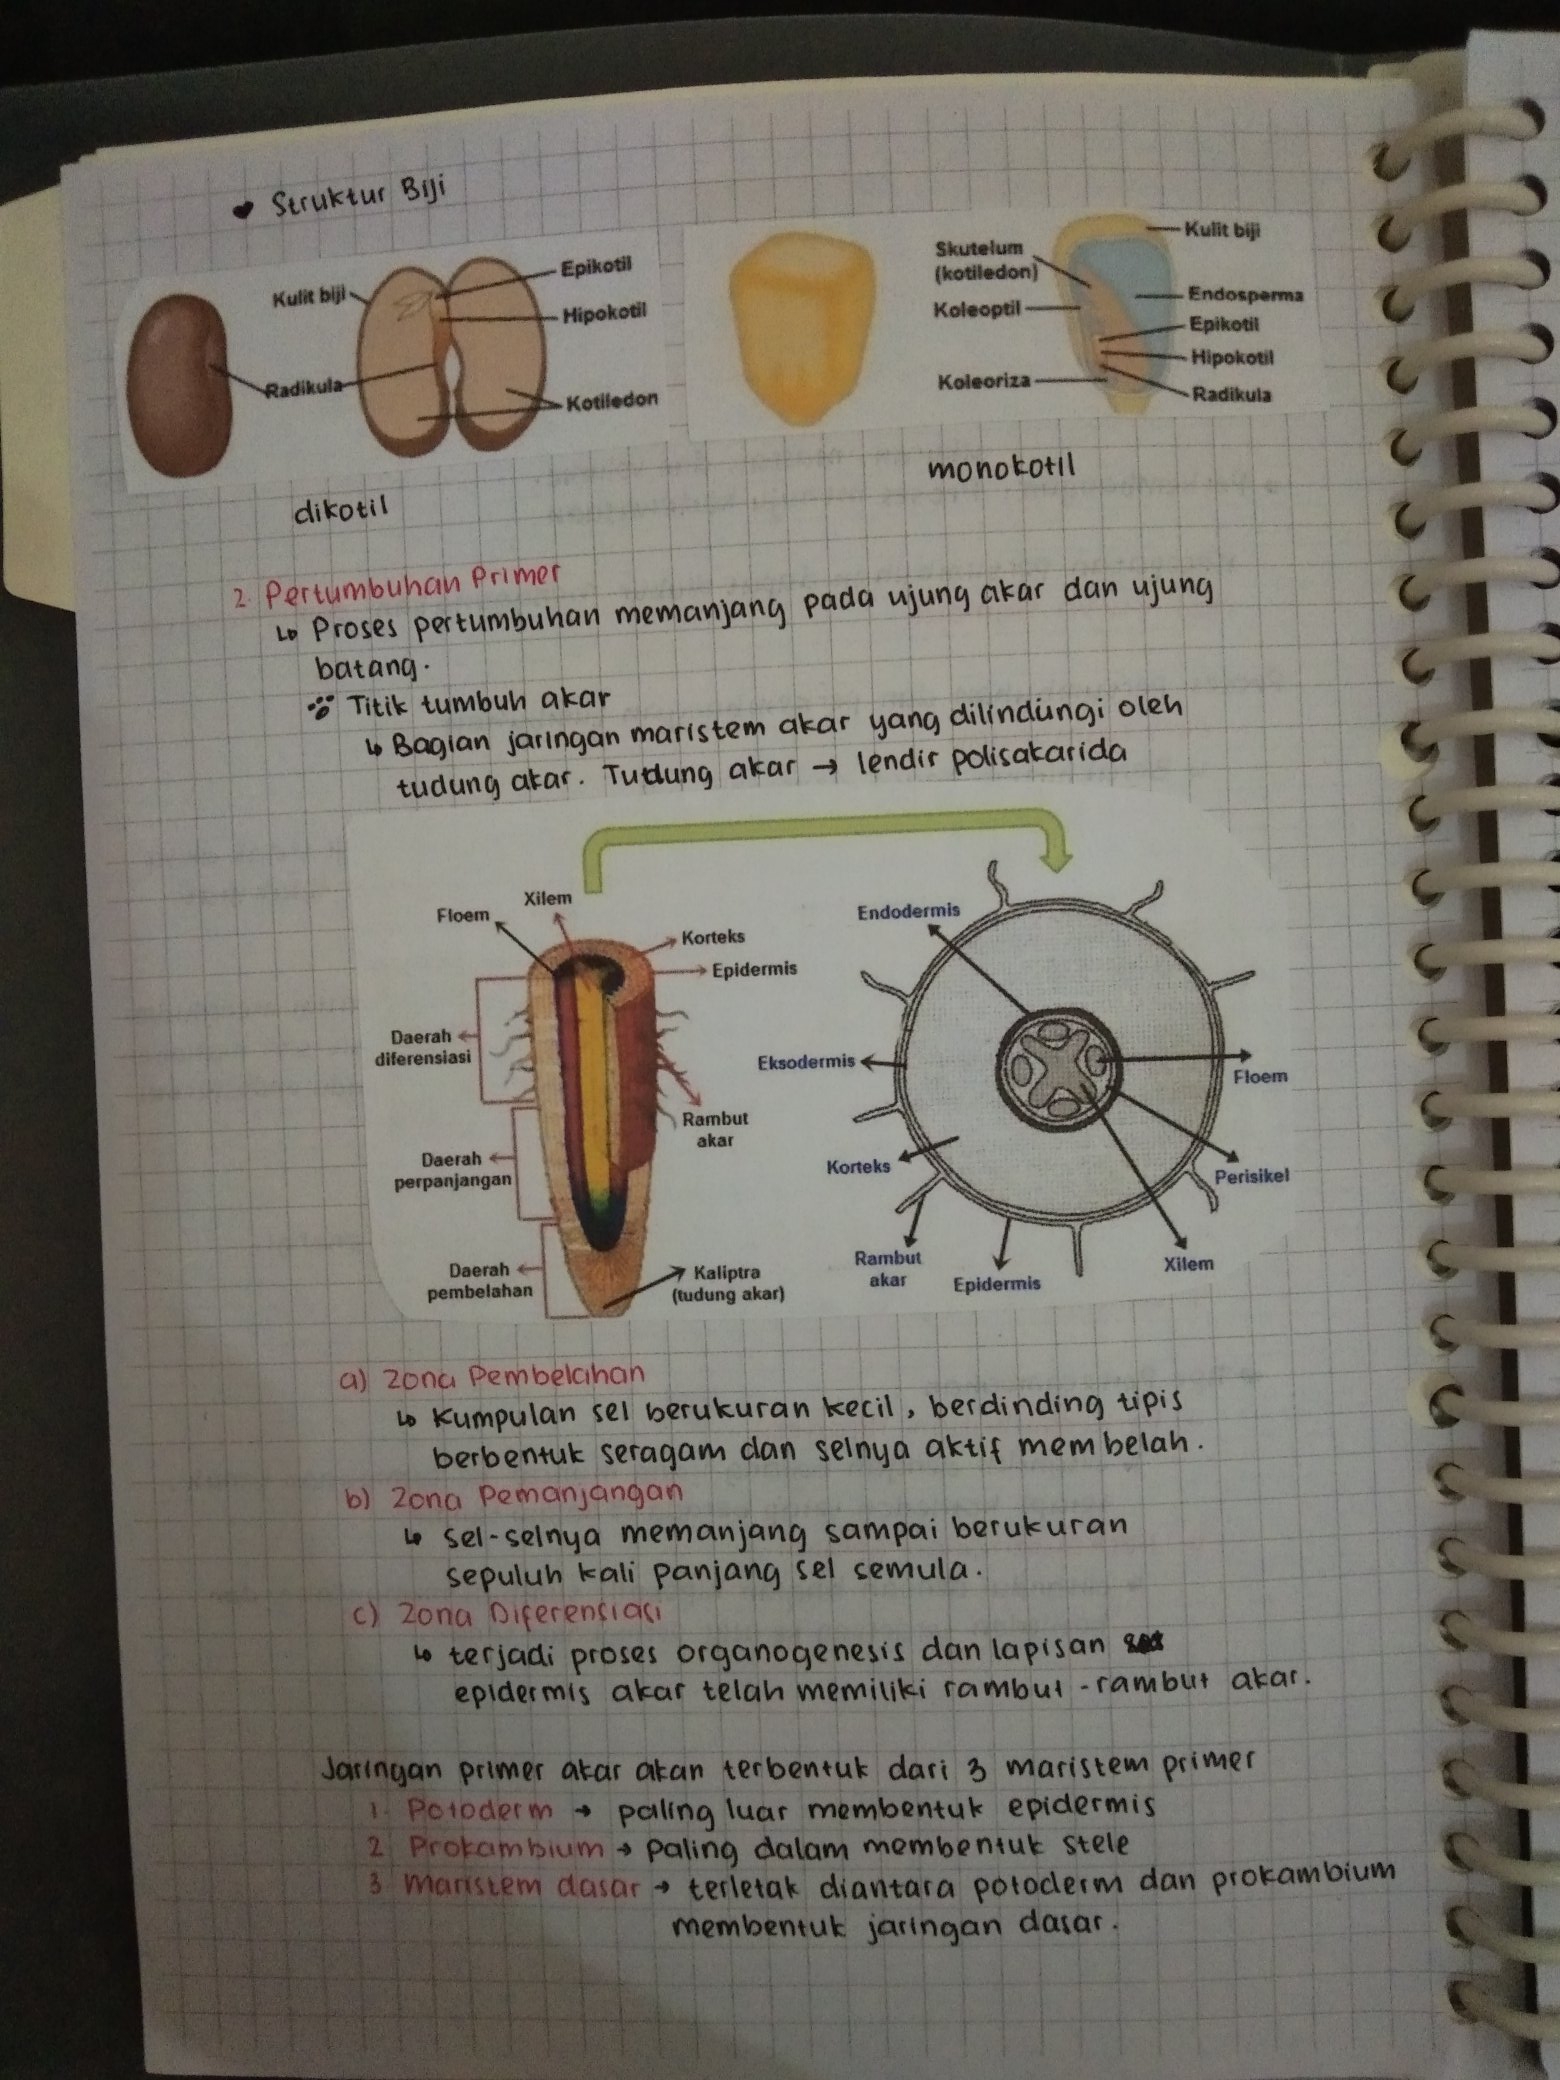 ♥ Struktur Biji
Kulit biji
Epikotil
Hipokotil
Radikula
Kotiledon
dikotil
Skutelum
(kotiledon)
Koleoptil
Koleoriza
Kulit biji
Endosperma
Epikotil
Hipokotil
Radikula
monokotil
2. Pertumbuhan Primer
↳ Proses pertumbuhan memanjang pada ujung akar dan ujung
batang.
Titik tumbuh akar
↳ Bagian jaringan maristem akar yang dilindungi oleh
tudung akar. Tudung akar → lendir polisakarida
Floem
Xilem
Korteks
Epidermis
Daerah
diferensiasi
Rambut
akar
Daerah
perpanjangan
Daerah
pembelahan
Kaliptra
(tudung akar)
Endodermis
Eksodermis
Floem
Korteks
Perisikel
Rambut
akar
Epidermis
Xilem
a) Zona Pembelahan
↳ Kumpulan sel berukuran kecil, berdinding tipis
berbentuk seragam dan selnya aktif membelah.
b) Zona Pemanjangan
↳ sel-selnya memanjang sampai berukuran
sepuluh kali panjang sel semula.
c) Zona Diferensiasi
↳ terjadi proses organogenesis dan lapisan
epidermis akar telah memiliki rambut-rambut akar.
Jaringan primer akar akan terbentuk dari 3 maristem primer
1. Potoderm → paling luar membentuk epidermis
2. Prokambium → paling dalam membentuk stele
3. Maristem dasar → terletak diantara potoderm dan prokambium
membentuk jaringan dasar.